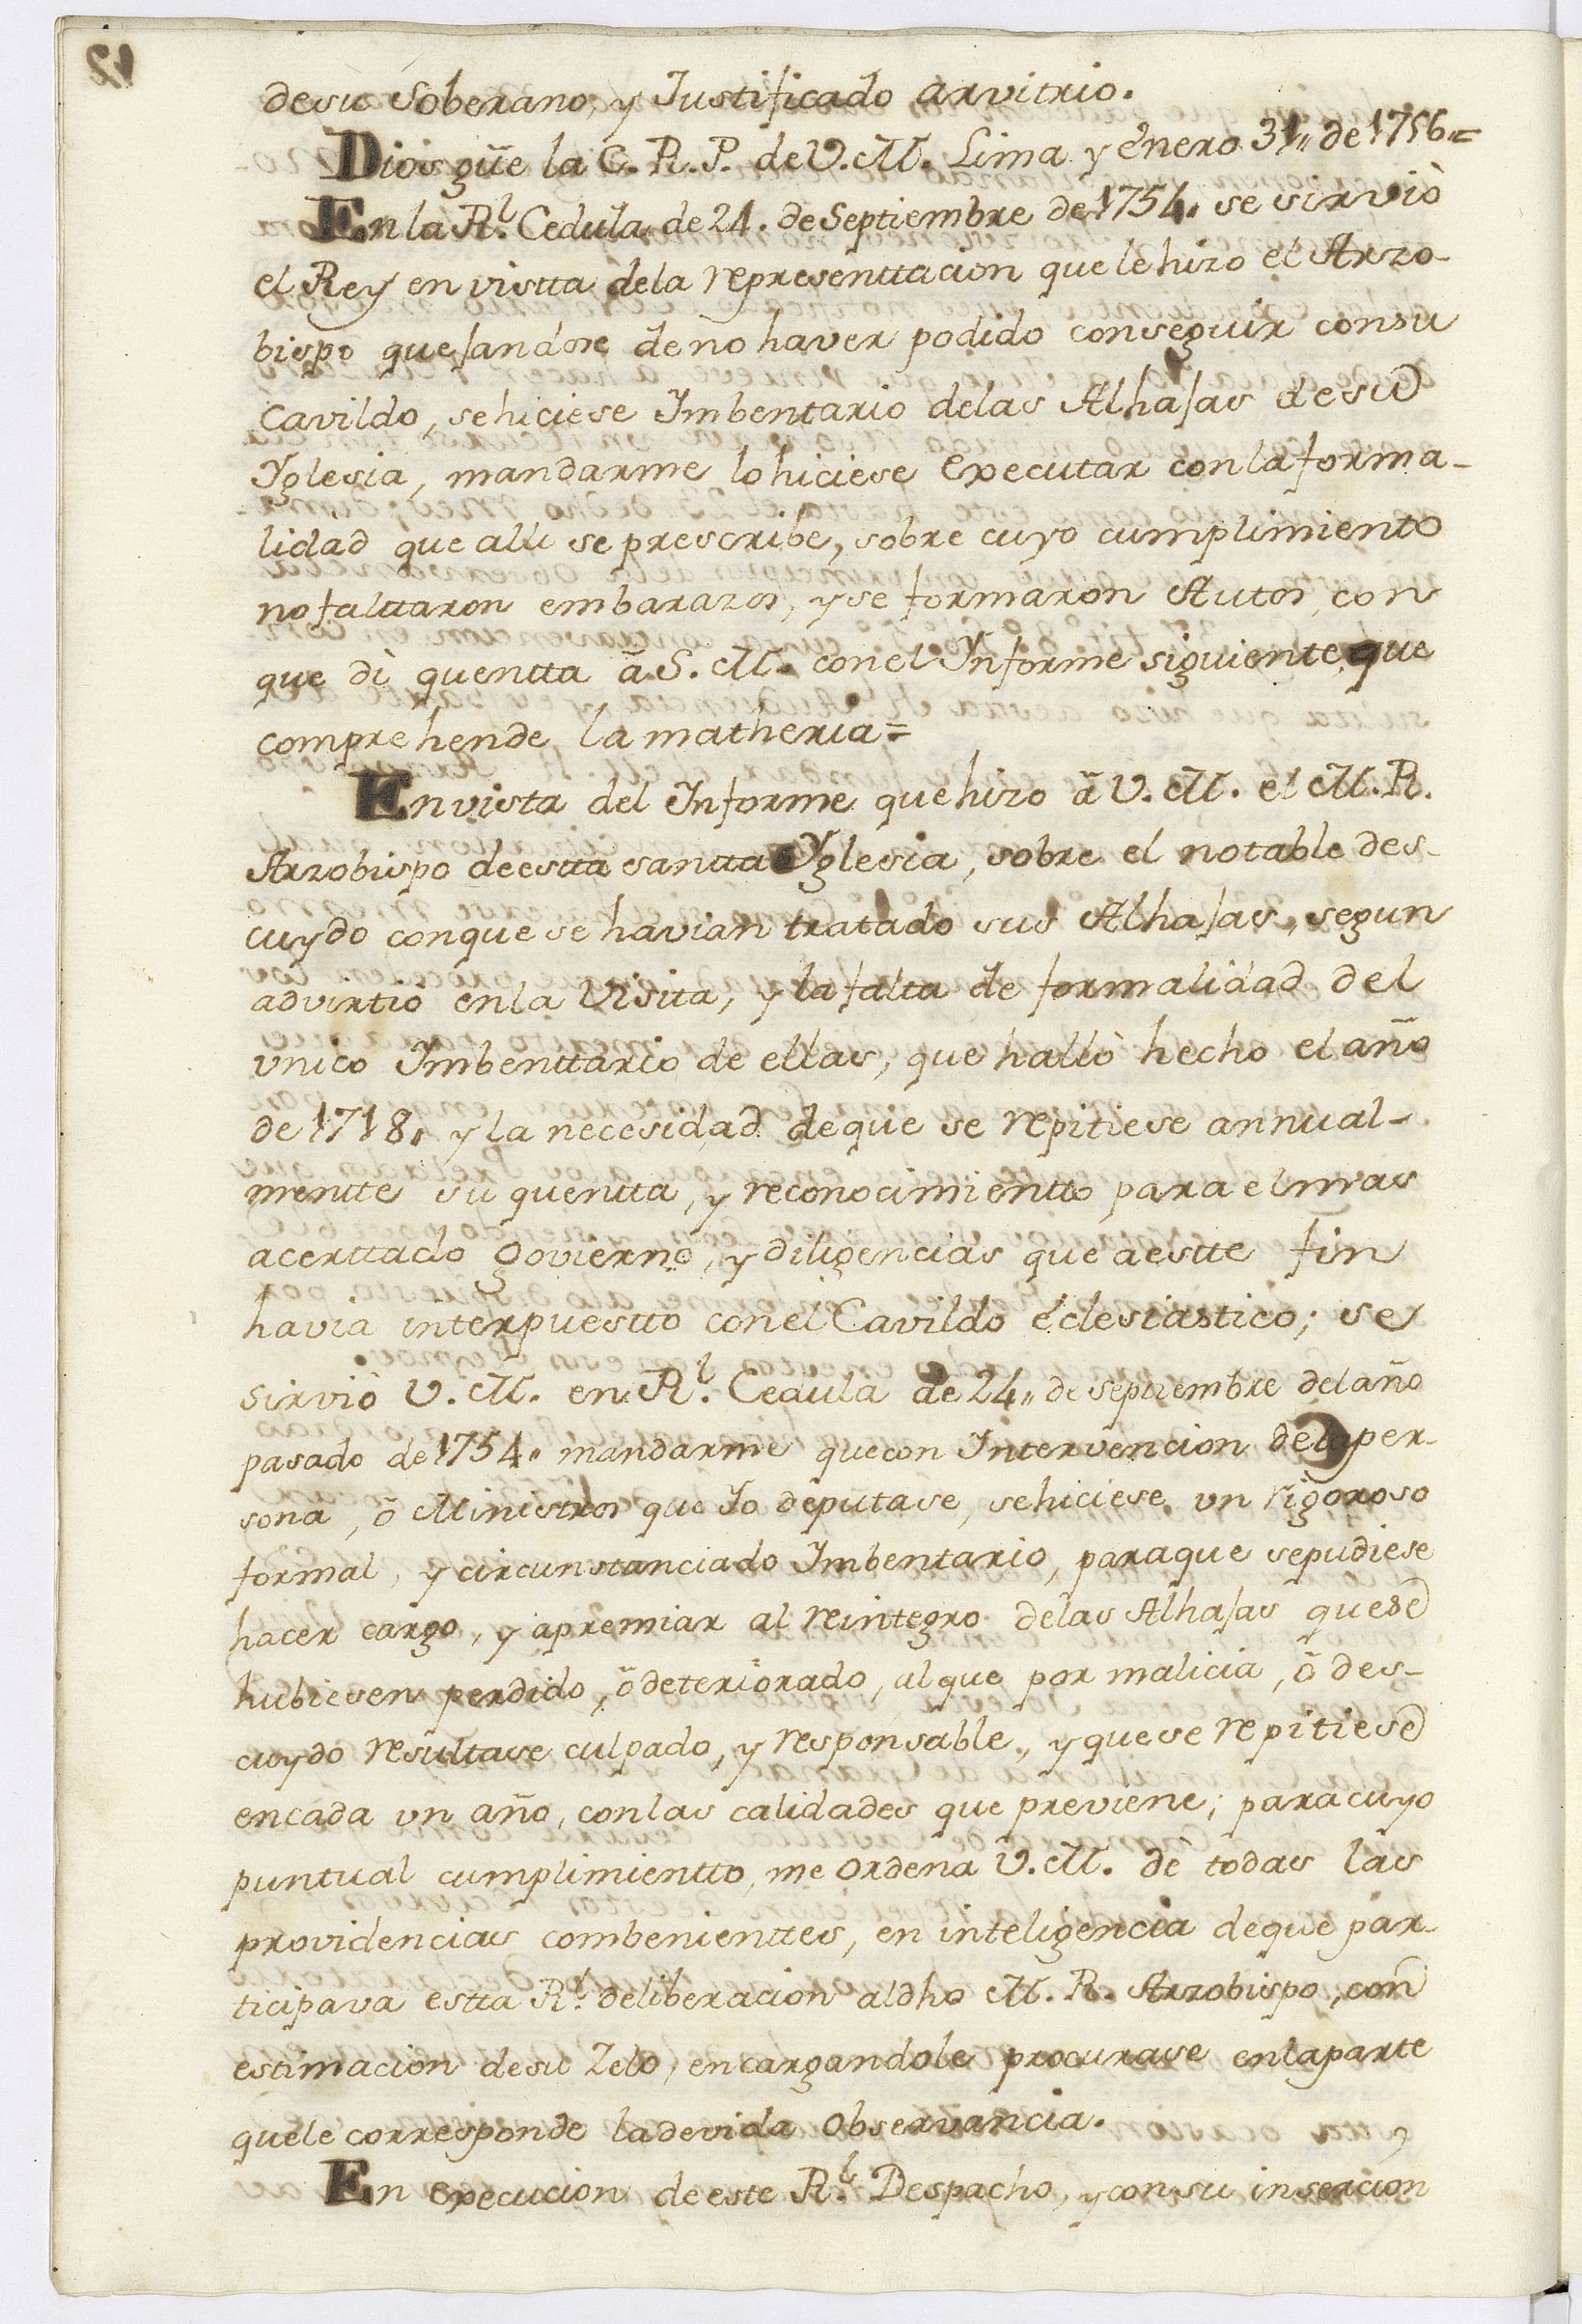 desu Soberano, y Justificado arvitrio.
Dios güe la C. R. P. de V. M. Lima y enero 31,, de 1756,,=
En la Rl. Cedula de 24. de Septiembre de 1754. se sirviò
el Rey en vistta dela representtacion que le hizo el Arzo-
bispo quejandose de no haver podido conseguir consu
Cavildo, se hiciese Imbentario delas Alhajas de su
Yglesia, mandarme lo hiciese executar con la forma-
lidad que alli se prescribe, sobre cuyo cumplimiento
no falttaron embarazos, y se formaron Autos, con
que dì quentta â S. M. con el Ynforme siguiente que
comprehende la matheria=
En vista del Informe que hizo â V. M. el M. R.
Arzobispo de estta santta Yglesia, sobre el notable des-
cuydo con que se havian tratado sus Alhajas, segun
advirtiò en la Visita, y la falta de formalidad del
vnico Imbenttario de ellas, que hallò hecho el año
de 1718, y la necesidad de que se repitiese annual-
mentte su quentta, y reconocimientto para el mas
acerttado govierno, y diligencias que a estte fin
havia interpuestto con el Cavildo eclesiastico; se
sirviò V. M. en Rl. Cedula de 24,, de septiembre del año
pasado de 1754. mandarme que con Intervencion dela per-
sona, ô Ministros que Yo deputase, se hiciese un rigoroso
formal, y circunstanciado Imbentario, paraque sepudiese
hacer cargo, y apremiar al reintegro delas Alhajas quese
hubiesen perdido, ô deteriorado, al que por malicia, ô des-
cuydo resultase culpado, y responsable, y que se repitiese
encada vn año, con las calidades que previene; para cuyo
puntual cumplimientto, me ordena V. M. dè todas las
providencias combenienttes, en inteligencia deque par-
ticipava estta Rl. deliberacion aldho M. R. Arzobispo, con
estimacion desu Zelo, encargandole procurase enlaparte
quele corresponde la devida observancia.
En execucion de este Rl. Despacho, y con su insercion